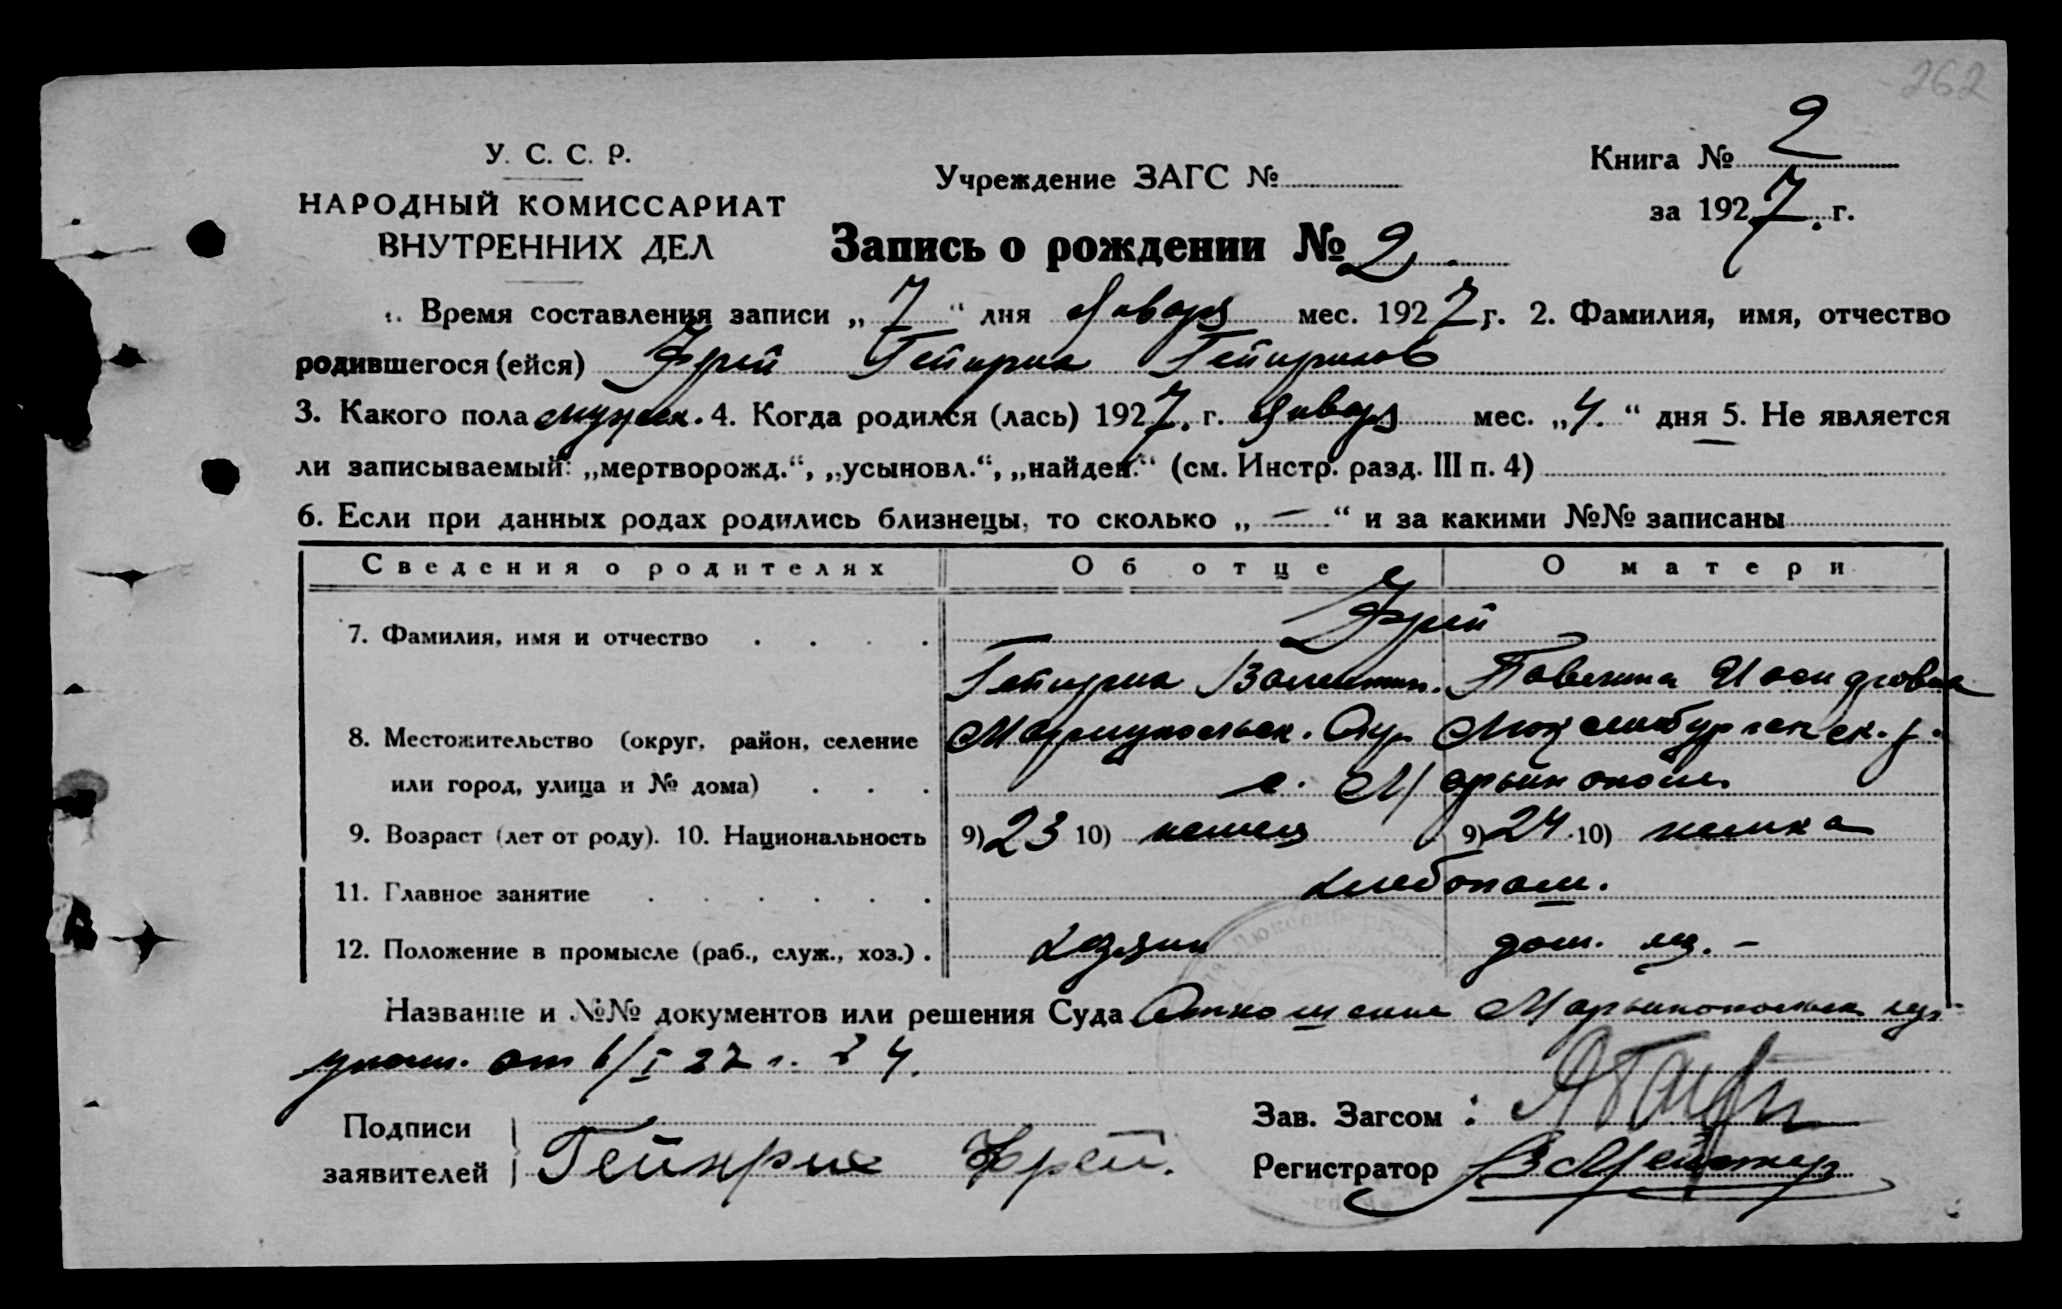 262
У. С. С. Р.
НАРОДНЫЙ КОМИССАРИАТ
ВНУТРЕННИХ ДЕЛ
Учреждение ЗАГС №
Книга № 2
за 1927 г.
Запись о рождении № 2.
1. Время составления записи „7“ дня Января мес. 1927 г. 2. Фамилия, имя, отчество
родившегося (ейся) Фрей Гейнрих Гейнрихов
3. Какого пола мужск. 4. Когда родился (лась) 1927. г. Января мес. „4.“ дня 5. Не является
ли записываемый: „мертворожд.“, „усыновл.“, „найден.“ (см. Инстр. разд. III п. 4)
6. Если при данных родах родились близнецы, то сколько „—“ и за какими №№ записаны
Сведения о родителях Об отце О матери
7. Фамилия, имя и отчество . . . . Фрей
Гейнрих Валентин. Павлина Иосифовна
8. Местожительство (округ, район, селение Мариупольск. Окр. Люксембургск. р.
или город, улица и № дома) . . . с. Марьинополь
9. Возраст (лет от роду). 10. Национальность 9) 23 10) немец 9) 24 10) немка
11. Главное занятие . . . . . хлебопаш.
12. Положение в промысле (раб., служ., хоз.) . хозяин дом. хоз. –
Название и №№ документов или решения Суда Отношение Марьинопольск
от 6/I 27 г. № 4.
Подписи
заявителей
Гейнрих Фрей.
Зав. Загсом :
Регистратор